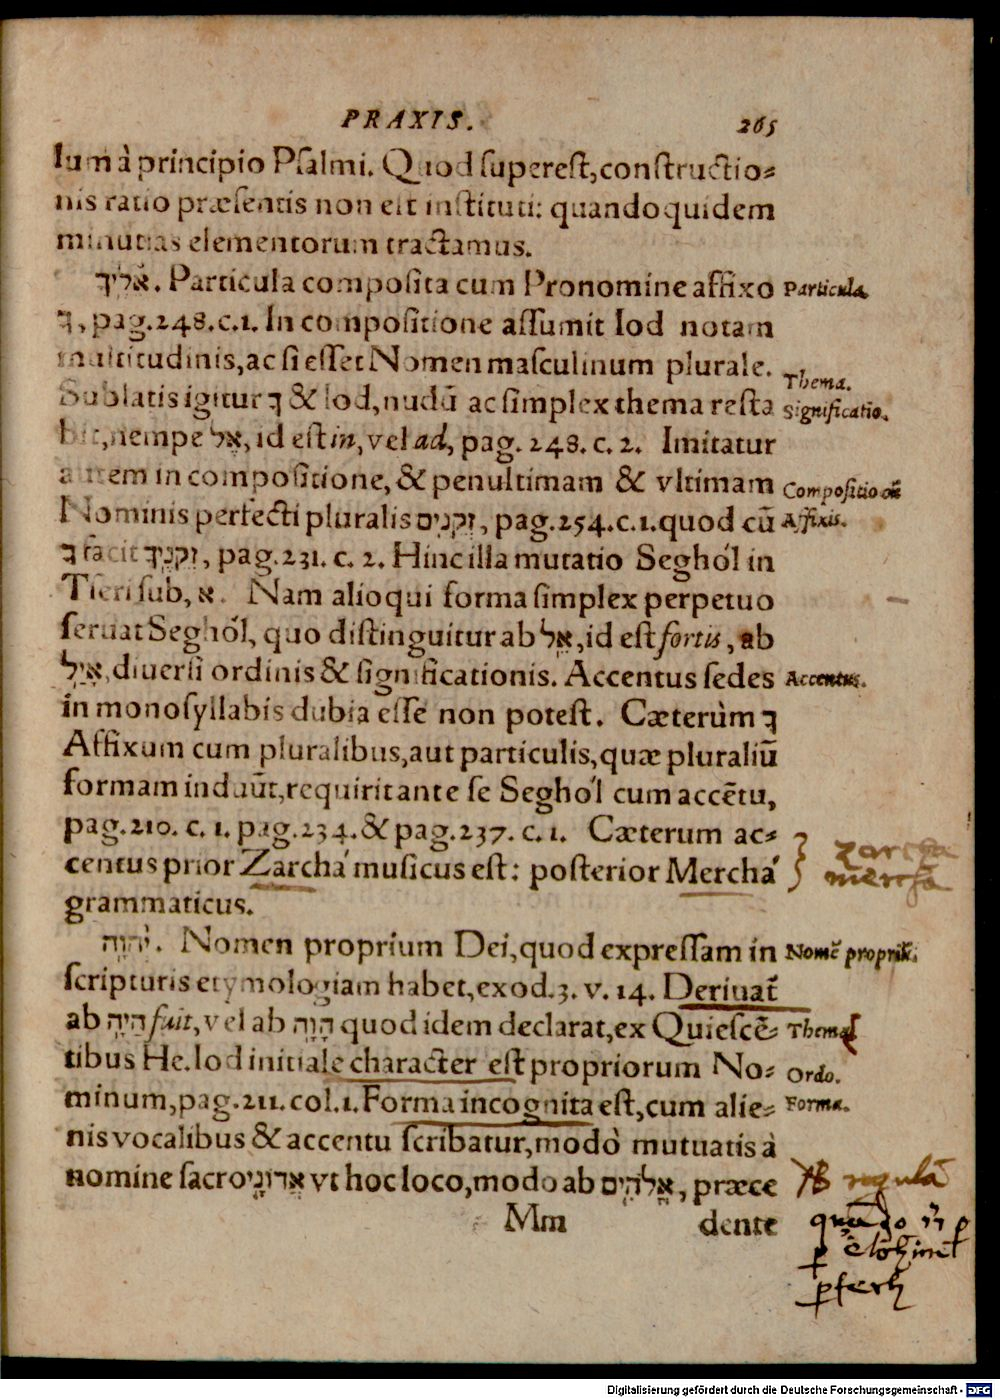 PRAXIS. 265
lum à principio Psalmi. Quod superest, constructio-
nis ratio præsentis non est instituti: quandoquidem
minutias elementorum tractamus.
אֵלֶיךָ. Particula composita cum Pronomine affixo Particula
ךָ, pag. 248. c. 1. In compositione assumit Iod notam
multitudinis, ac si esset Nomen masculinum plurale.
Thema.
Sublatis igitur ךָ & Iod, nudū ac simplex thema resta Significatio.
bit, nempe אֶל, id est in, vel ad, pag. 248. c. 2. Imitatur
autem in compositione, & penultimam & vltimam Compositio cū
Nominis perfecti pluralis זְקֵנִים, pag. 254. c. 1. quod cū Affixis.
ךָ facit זְקֵנֶיךָ, pag. 231. c. 2. Hinc illa mutatio Seghól in
Tseri sub, א. Nam alioqui forma simplex perpetuo
seruat Seghól, quo distinguitur ab אֵל, id est fortis, ab
אַיִל, diuersi ordinis & significationis. Accentus sedes Accentus.
in monosyllabis dubia esse non potest. Cæterùm ךָ
Affixum cum pluralibus, aut particulis, quæ pluraliū
formam induūt, requirit ante se Seghól cum accētu,
pag. 210. c. 1. pag. 234. & pag. 237. c. 1. Cæterum ac-
centus prior Zarchá musicus est: posterior Merchá
zarcha
mercha
grammaticus.
יְהֹוָה. Nomen proprium Dei, quod expressam in Nomē propriū.
scripturis etymologiam habet, exod. 3. v. 14. Deriuat̄
ab הָיָה fuit, vel ab הָוָה quod idem declarat, ex Quiescē- Thema
tibus He. Iod initiale character est propriorum No- Ordo.
minum, pag. 211. col. 1. Forma incognita est, cum alie- Forma.
nis vocalibus & accentu scribatur, modò mutuatis à
nomine sacro אֲדוֹנָי vt hoc loco, modo ab אֱלֹהִים, præce
NB regulā
Mm dente
quādo